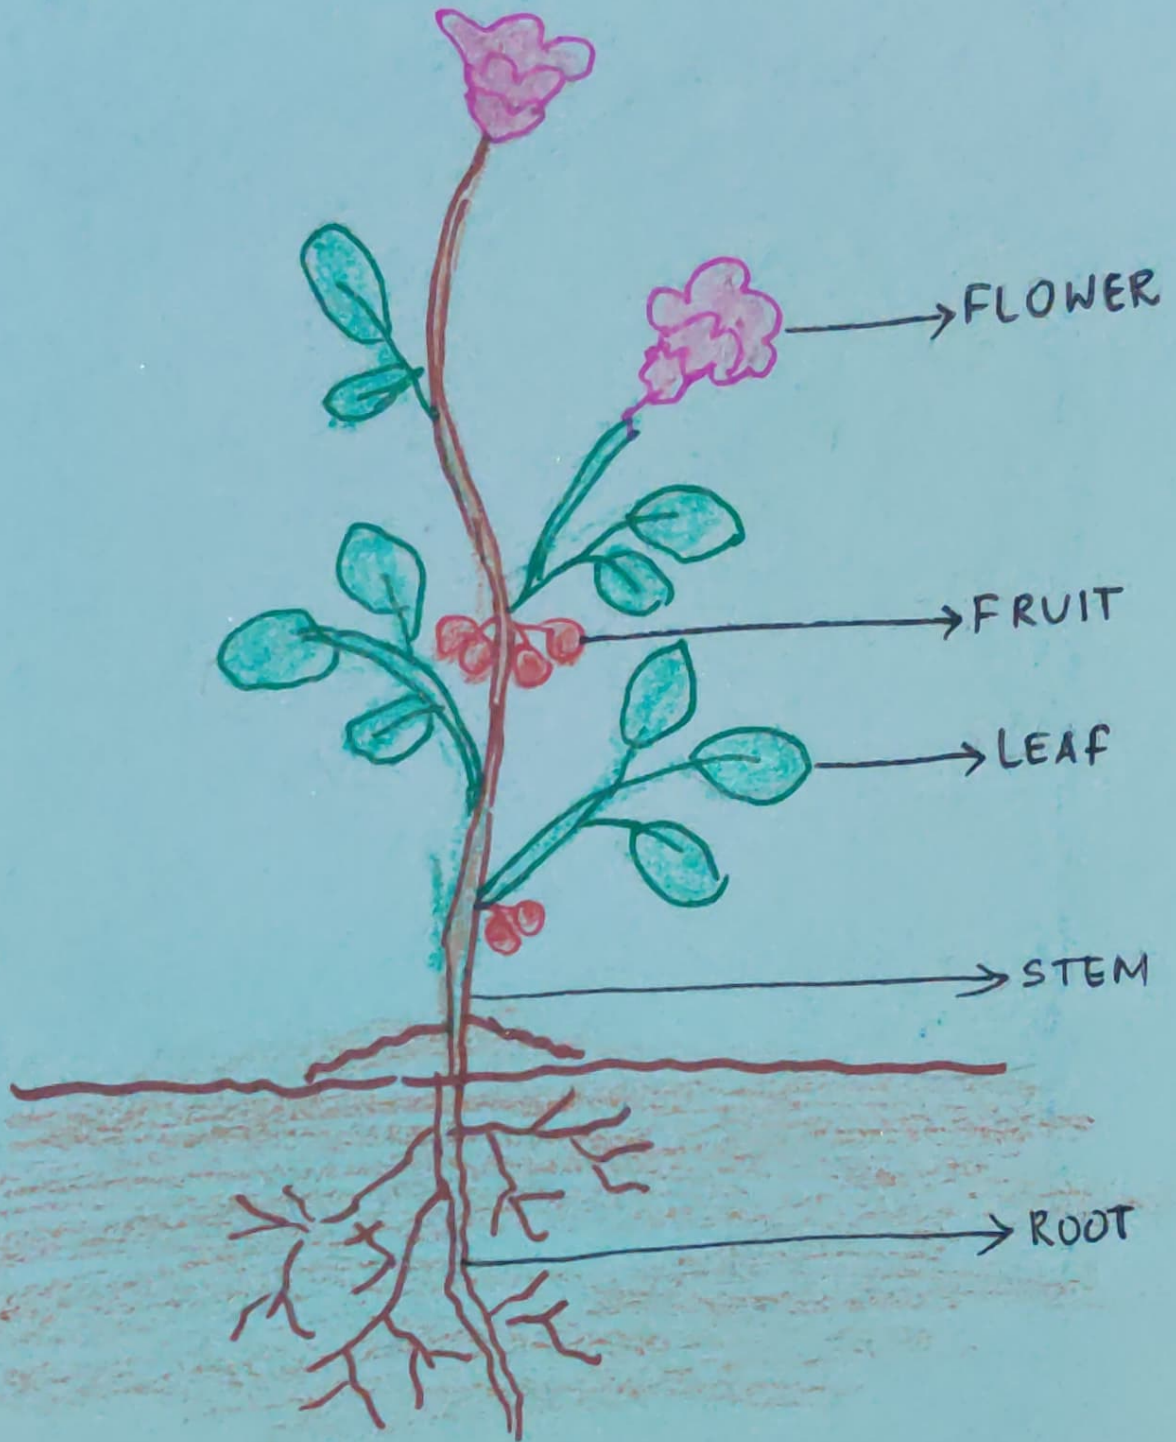 FLOWER
FRUIT
LEAF
STEM
ROOT